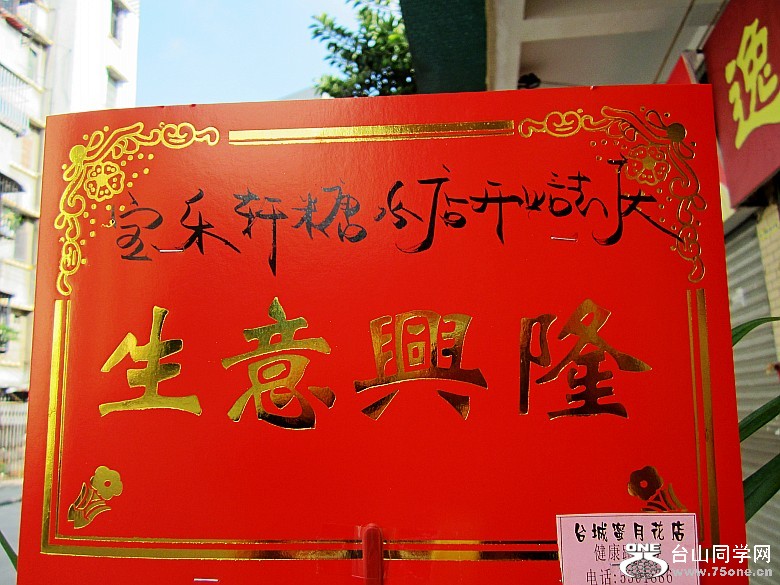 逸
宝禾轩糖水店开始志庆
生意興隆
台城蜜月花店
健康路
电话:5501666
ONE
台山同学网
www.75one.cn